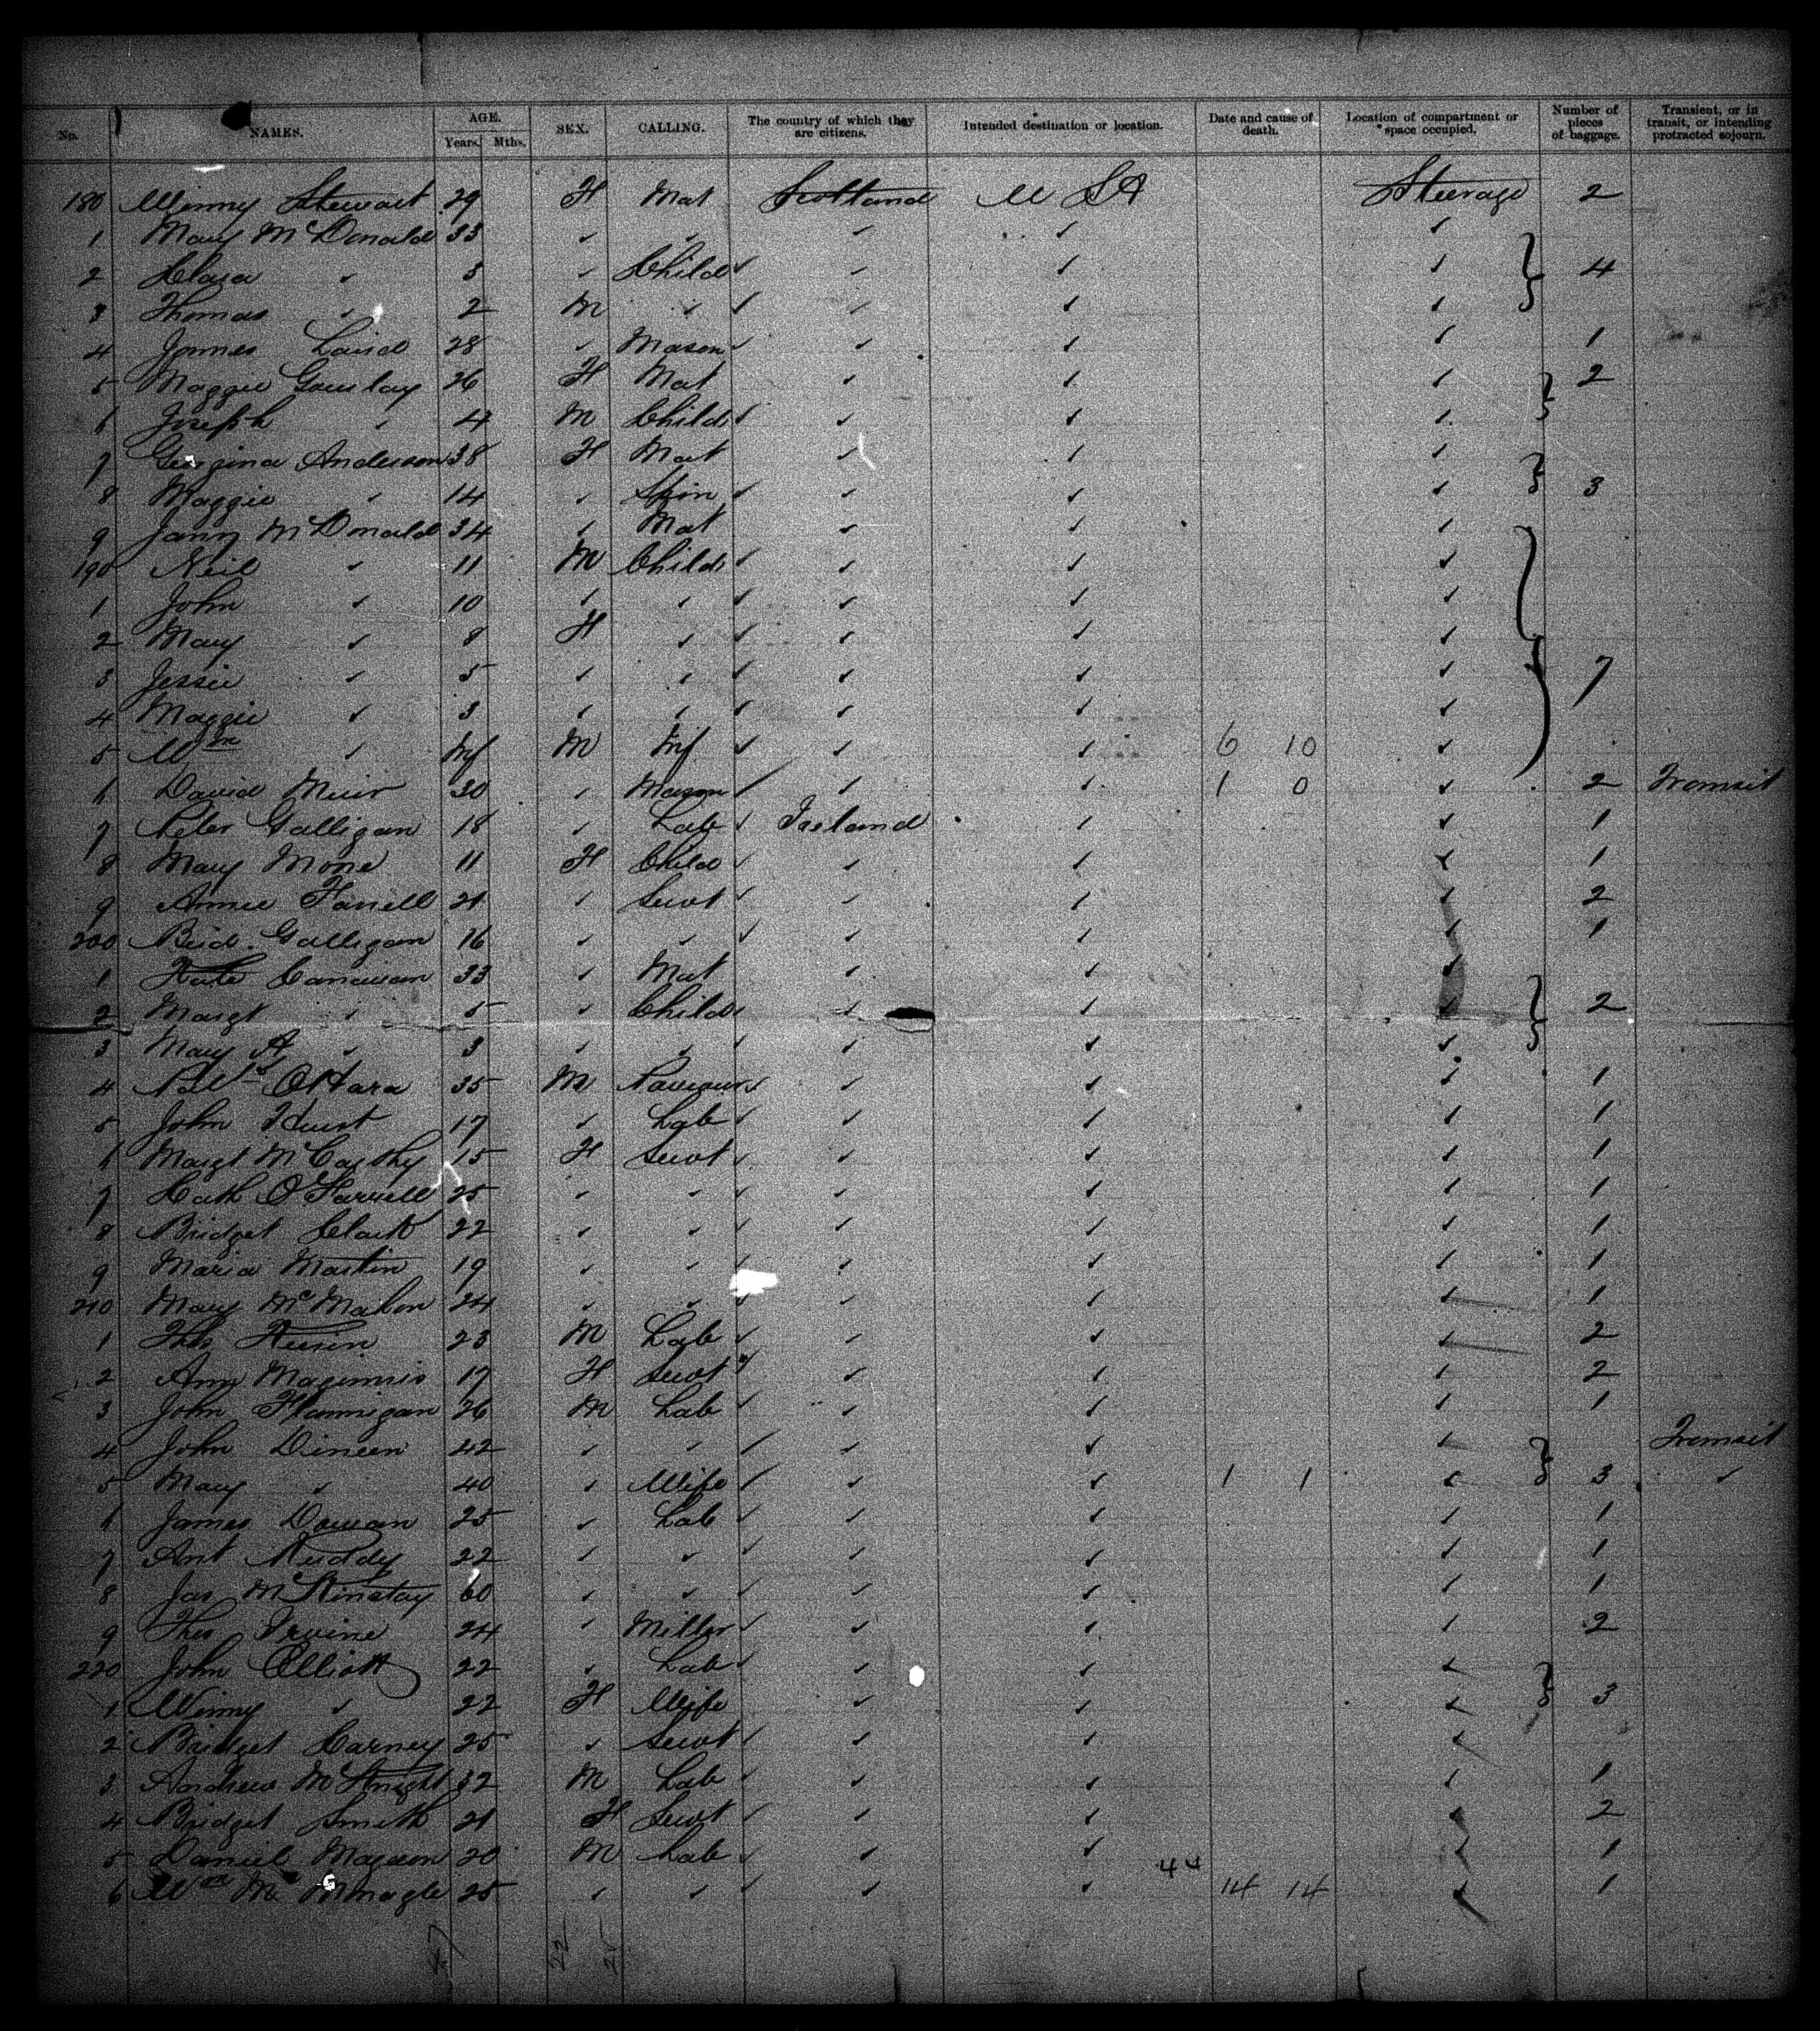 No. NAMES. AGE. Years. Mths. SEX. CALLING. The country of which they are citizens. Intended destination or location. Date and cause of death. Location of compartment or space occupied. Number of pieces of baggage. Transient, or in transit, or intending protracted sojourn.
180 Winny Stewart 29 F Mat Scotland U SA Steerage 2
1 Mary McDonald 33 ✓ ✓ ✓ ✓ ✓
2 Clara ✓ ✓ Child ✓ ✓ ✓ ✓ 4
3 Thomas ✓ 2 M ✓ ✓ ✓ ✓ ✓
4 James Laird 28 ✓ Mason ✓ ✓ ✓ ✓ 1
5 Maggie Gourlay 26 F Mat ✓ ✓ ✓ 2
6 Joseph ✓ 4 M Child ✓ ✓ ✓ ✓
7 Georgina Anderson 38 F Mat ✓ ✓ ✓
8 Maggie ✓ 14 ✓ Spin ✓ ✓ ✓ ✓ 3
9 McDonald 34 ✓ Mat ✓ ✓ ✓
190 Neil ✓ 11 M Child ✓ ✓ ✓ ✓
1 John ✓ 10 ✓ ✓ ✓ ✓ ✓ ✓
2 Mary ✓ 8 F ✓ ✓ ✓ ✓ ✓
3 Jessie ✓ 5 ✓ ✓ ✓ ✓ ✓ ✓ 7
4 Maggie ✓ 3 ✓ ✓ ✓ ✓ ✓ ✓
5 Wm ✓ Inf M Inf ✓ ✓ ✓ 6 10 ✓
6 David Muir 30 ✓ Mason ✓ ✓ ✓ 1 0 ✓ 2 Transit
7 Peter Galligan 18 ✓ Lab ✓ Ireland ✓ ✓ 1
8 Mary Mone 11 F Child ✓ ✓ ✓ ✓ 1
9 Annie Farrell 21 ✓ Servt ✓ ✓ ✓ ✓ 2
200 Brid. Galligan 16 ✓ ✓ ✓ ✓ ✓ ✓ 1
1 Kate 33 ✓ Mat ✓ ✓ ✓
2 Margt ✓ 5 ✓ Child ✓ ✓ ✓ ✓ 2
3 Mary A ✓ 3 ✓ ✓ ✓ ✓ ✓ ✓
4 O'Hara 35 M ✓ ✓ ✓ 1
5 John Hurst 17 ✓ Lab ✓ ✓ ✓ ✓ 1
6 Margt McCarthy 15 F Servt ✓ ✓ ✓ ✓ 1
7 Cath O'Farrell 25 ✓ ✓ ✓ ✓ ✓ ✓ 1
8 Bridget Clark 22 ✓ ✓ ✓ ✓ ✓ ✓ 1
9 Maria Martin 19 ✓ ✓ ✓ ✓ ✓ ✓ 1
210 Mary McMahon 24 ✓ ✓ ✓ ✓ ✓ ✓ 1
1 Thos 23 M Lab ✓ ✓ ✓ ✓ 2
2 Ann Maginnis 17 F Servt ✓ ✓ ✓ 2
3 John Flannigan 26 M Lab ✓ ✓ ✓ ✓ 1
4 John Dineen 42 ✓ ✓ ✓ ✓ ✓ ✓ Transit
5 Mary ✓ 40 ✓ Wife ✓ ✓ ✓ 1 1 ✓ 3 ✓
6 James 25 ✓ Lab ✓ ✓ ✓ ✓ 1
7 Ant Ruddy 22 ✓ ✓ ✓ ✓ ✓ ✓ 1
8 Jas McKinstay 60 ✓ ✓ ✓ ✓ ✓ ✓ 1
9 Thos Irvine 24 ✓ Miller ✓ ✓ ✓ ✓ 2
220 John Elliott 22 ✓ Lab ✓ ✓ ✓ ✓
1 Winny ✓ 22 F Wife ✓ ✓ ✓ 3
2 Bridget Carney 25 ✓ Servt ✓ ✓ ✓ ✓
3 Andrew McKnight 32 M Lab ✓ ✓ ✓ ✓ 1
4 Bridget Smith 21 F Servt ✓ ✓ ✓ ✓ 2
5 Daniel 20 M Lab ✓ ✓ ✓ ✓ 1
44
6 Wm 25 ✓ ✓ ✓ ✓ ✓ 14 14 ✓ 1
47 22 25